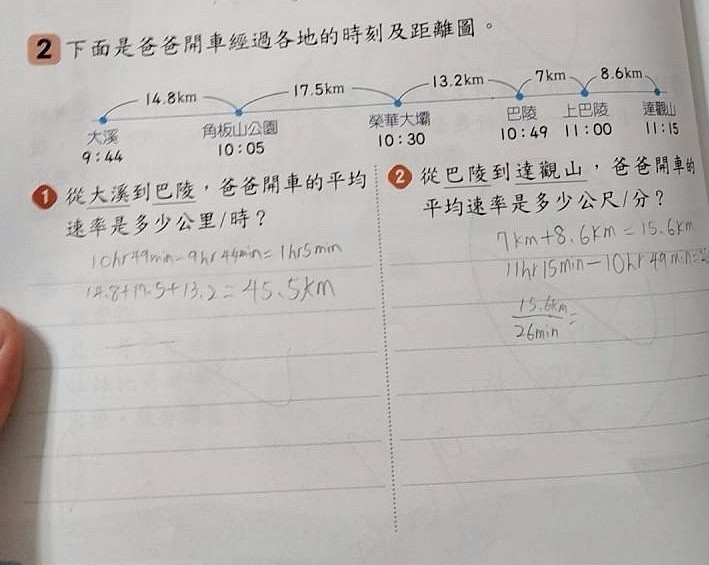 2 下面是爸爸開車經過各地的時刻及距離圖。
14.8km 17.5km 13.2km 7km 8.6km
大溪 角板山公園 榮華大壩 巴陵 上巴陵 達觀山
9:44 10:05 10:30 10:49 11:00 11:15
1 從大溪到巴陵，爸爸開車的平均
速率是多少公里/時？
10hr49min-9hr44min=1hr5min
14.8+17.5+13.2=45.5km
2 從巴陵到達觀山，爸爸開車的
平均速率是多少公尺/分？
7km+8.6km=15.6km
11hr15min-10hr49min=
15.6km
26min =